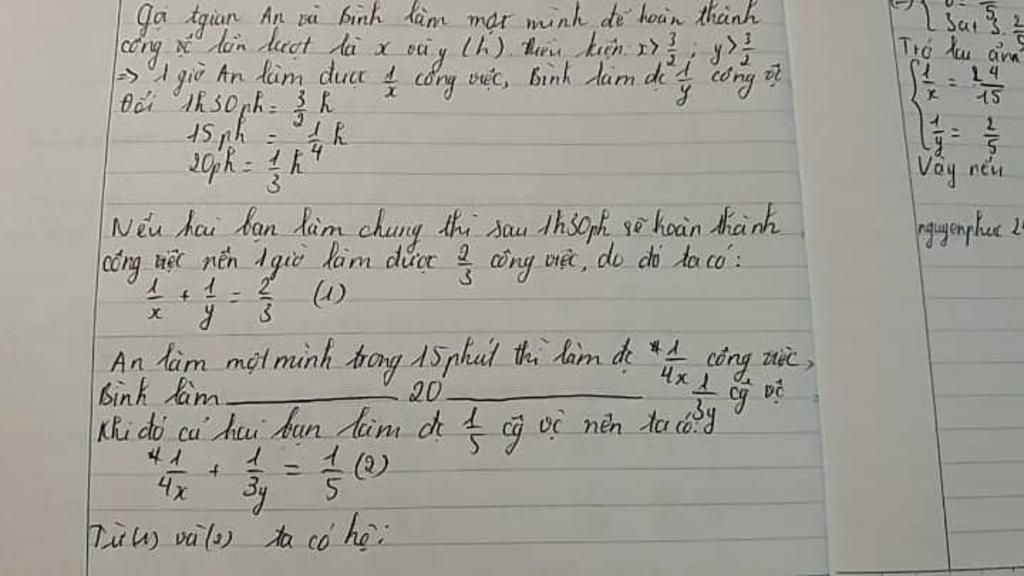 Gọi tgian An và Bình làm một mình để hoàn thành
công vc lần lượt là x và y (h) điều kiện x > 3/2 ; y > 3/2
=> 1 giờ An làm được 1/x công việc, Bình làm đc 1/y công vc
Đổi 1h30ph = 3/2 h
15ph = 1/4 h
20ph = 1/3 h
Nếu hai bạn làm chung thì sau 1h30ph sẽ hoàn thành
công việc nên 1 giờ làm được 2/3 công việc, do đó ta có:
1/x + 1/y = 2/3 (1)
An làm một mình trong 15 phút thì làm đc 1/4x công việc,
Bình làm ___ 20 ___ 1/3y cg vc
Khi đó cả hai bạn làm đc 1/5 cg vc nên ta có:
1/4x + 1/3y = 1/5 (2)
Từ (1) và (2) ta có hệ:
Trả lại ẩn
1/x =
15
1/y = 2/5
Vậy nếu
nguyenphuc